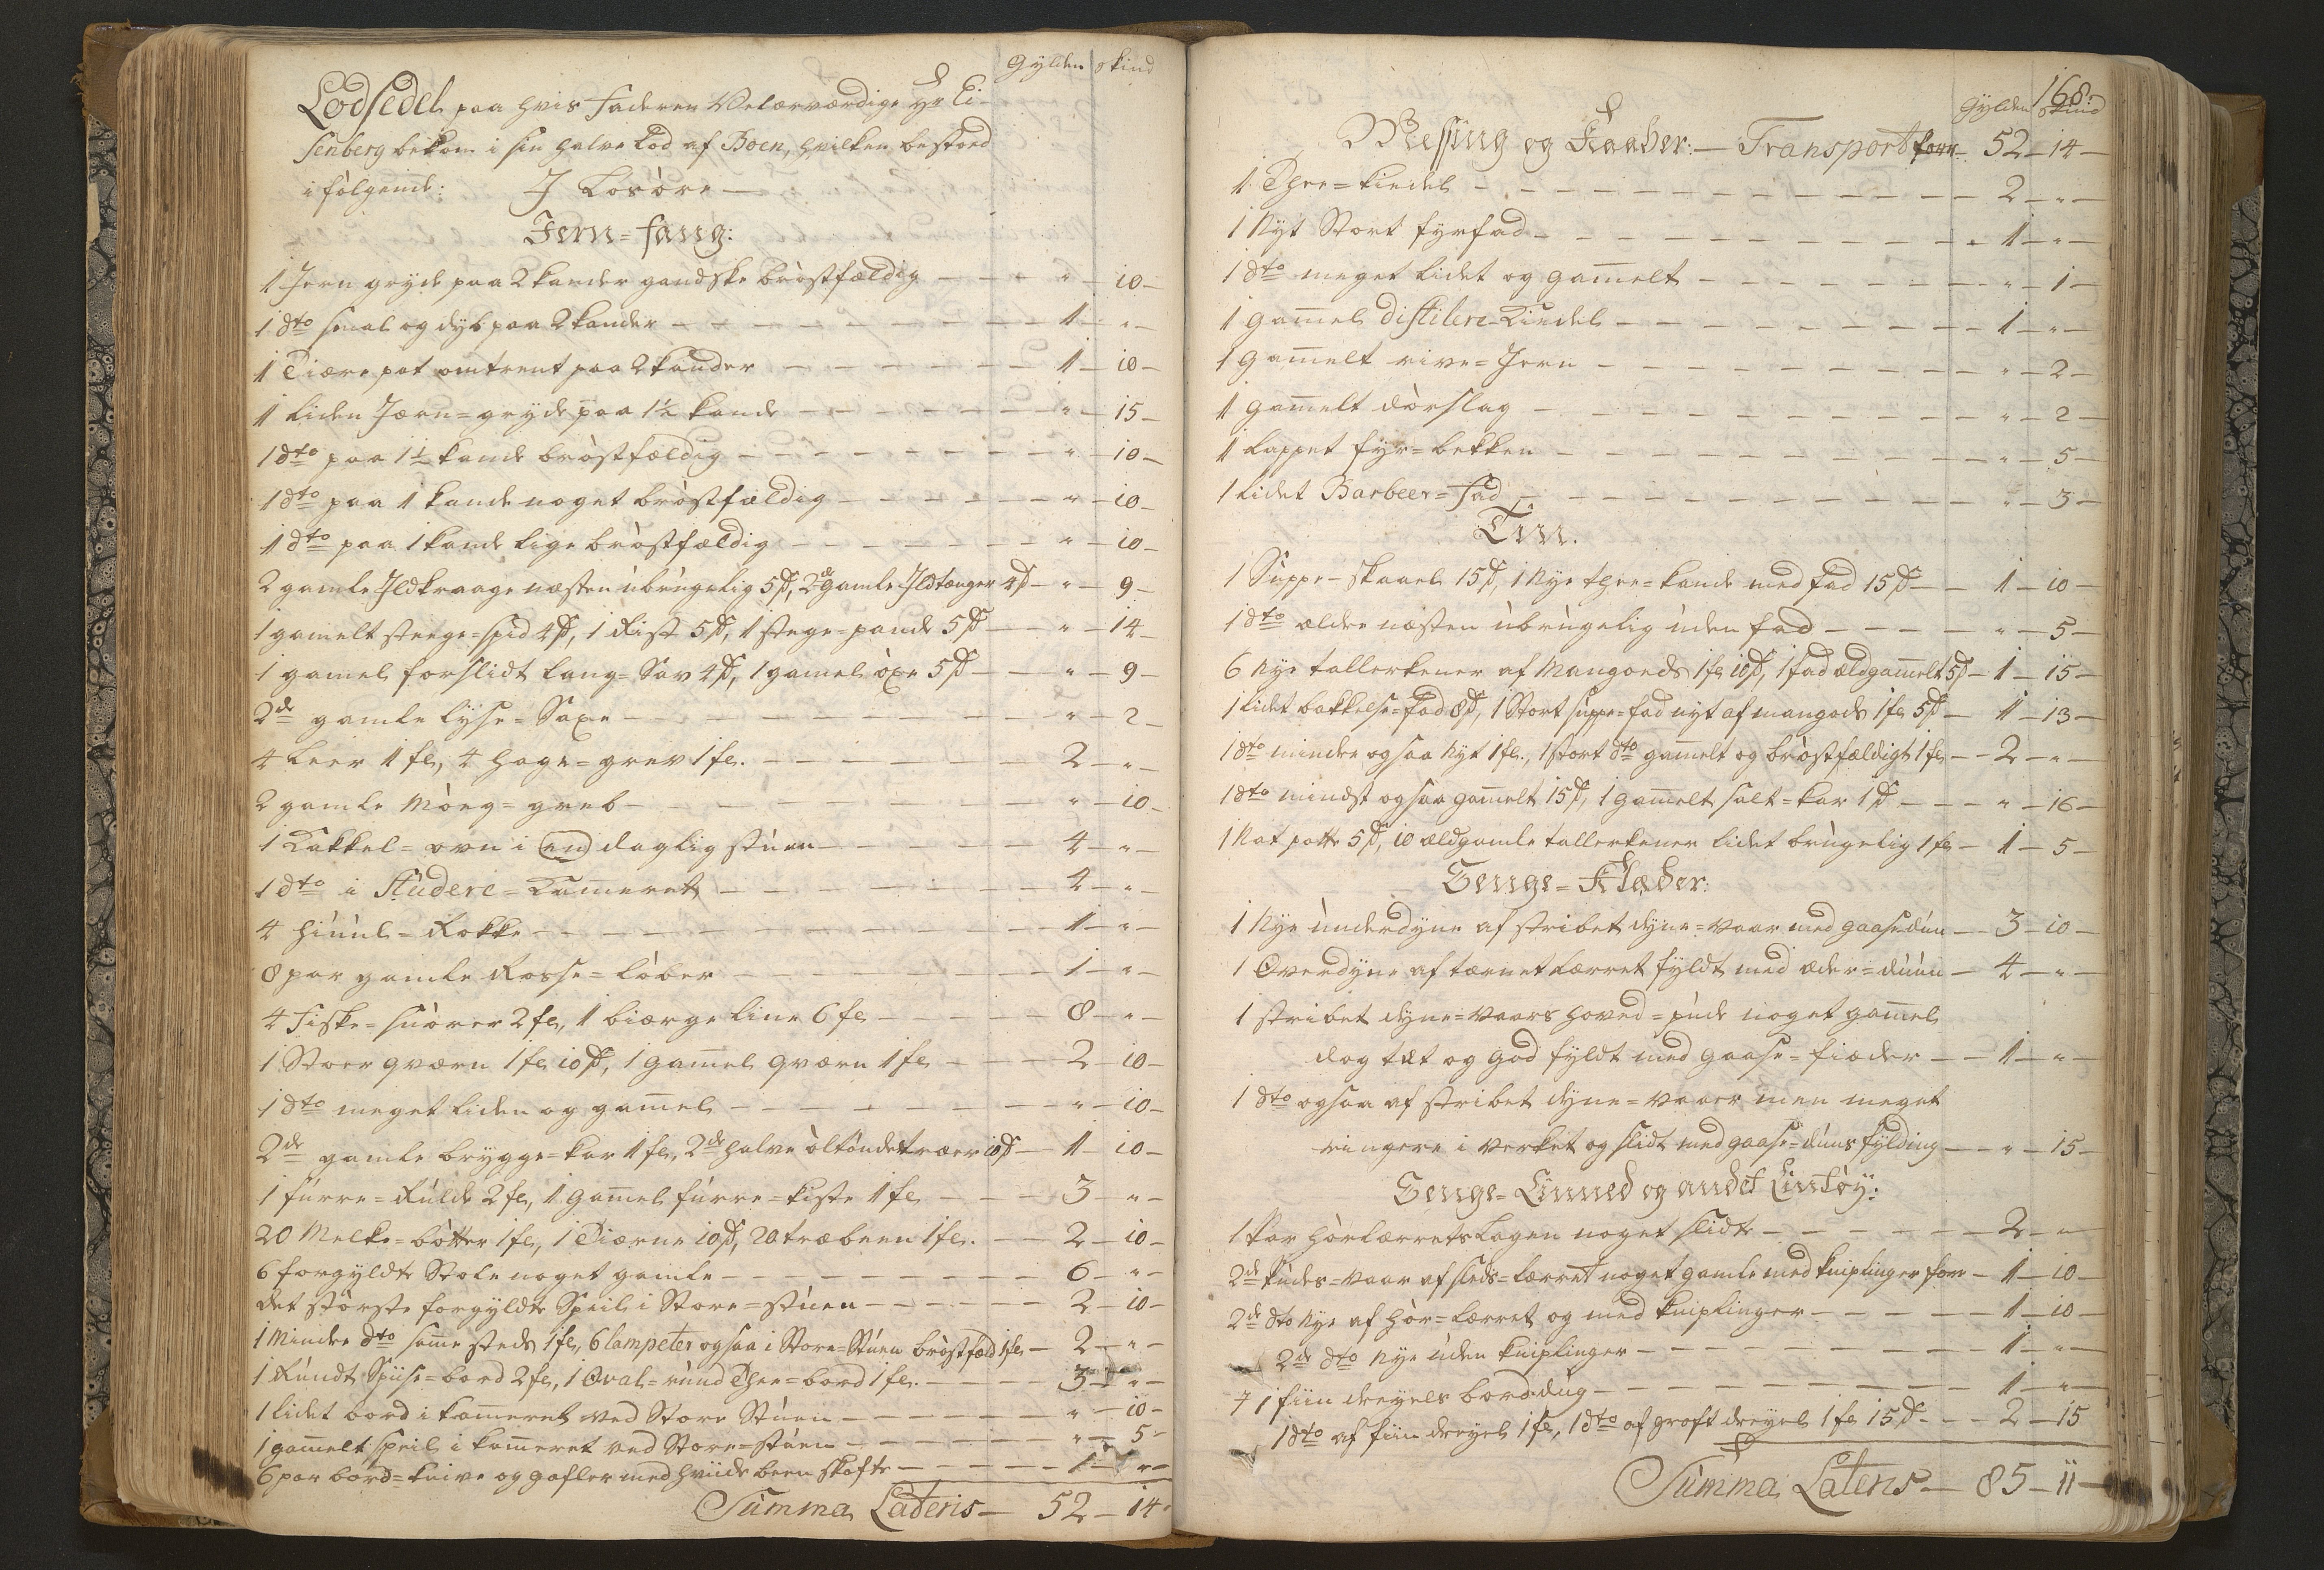 Gylden skind
Lodsedel paa hvis Faderen Velærværdige Hr Ei-
senberg bekom i sin halve Lod af Boen, hvilken bestoed
i følgende: I Losøre —
Jern=fang:
1 Jern gryde paa 2 kander gandske brøstfældig — " — 10 —
1 dto smal og dyb paa 2 kander — 1 — " —
1 Tiære pot omtrent paa 2 kander — 1 — 10 —
1 liden Jærn=gryde paa 1½ kande — " — 15 —
1 dto paa 1½ kande brøstfældig — " — 10 —
1 dto paa 1 kande noget brøstfældig — " — 10 —
1 dto paa 1 kande lige brøstfældig — " — 10 —
2 gamle Ildkraage næsten ubrugelig 5 ß, 2de gamle Ildtænger 4 ß — " — 9 —
1 gamelt steege=spid 4 ß, 1 Rist 5 ß, 1 stege=pande 5 ß — " — 14 —
1 gamel forslidt Lang=Sav 4 ß, 1 gamel øxe 5 ß — " — 9 —
2de gamle lyse=Saxe — " — 2 —
4 Leer 1 fl, 4 hage=grev 1 fl. — 2 — " —
2 gamle Møeg=greb — " — 10 —
1 Kakkel=ovn i en daglig stuen — 4 — " —
1 dto i Studere=Kameret — 4 — " —
4 Hiuul=Rokke — 1 — " —
8 par gamle Rosse=løber — 1 — " —
4 Fiske=snører 2 fl, 1 biærge line 6 fl — 8 — " —
1 Stoer qværn 1 fl 10 ß, 1 gam̄el qværn 1 fl — 2 — 10 —
1 dto meget liden og gam̄el — " — 10 —
2de gamle brygge=kar 1 fl, 2de halve øltøndetræer 10 ß — 1 — 10 —
1 furre=Rulde 2 fl, 1 gam̄el furre=kiste 1 fl — 3 — " —
20 Melke=bøtter 1 fl, 1 Tiærne 10 ß, 20 træbeen 1 fl. — 2 — 10 —
6 forgyldte Stole noget gamle — 6 — " —
det største forgyldte Speil i Store=stuen — 2 — 10 —
1 Mindre dto sam̄e steds 1 fl, 6 lampeter ogsaa i Store=Stuen brøstfæld 1 fl — 2 — " —
1 Rundt Spiise=bord 2 fl, 1 Oval=rund Thee=bord 1 fl. — 3 — " —
1 lidet bord i kam̄eret ved Store Stuen — " — 10 —
1 gam̄elt speil i kam̄eret ved Store=stuen — " — 5 —
6 par bord=knive og gafler med hviide been skafte — 1 — " —
Summa Lateris — 52 — 14
168.
Gylden skind
Messing og Kaaber: — Transport forr — 52 — 14 —
1 Thee=kiedel — 2 — " —
1 Nyt Stort fyrfad — 1 — " —
1 dto meget lidet og gam̄elt — " — 1 —
1 gam̄el distilere=Kiedel — 1 — " —
1 gam̄elt rive=Jern — " — 2 —
1 gam̄elt dørslag — " — 2 —
1 lappet fyr=bekken — " — 5 —
1 lidet Barbeer=fad — " — 3 —
Tin.
1 Suppe=skaael 15 ß, 1 Nye thee=kande med fad 15 ß — 1 — 10 —
1 dto ældre næsten ubrugelig uden fad — " — 5 —
6 Nye tallerkener af Mangoeds 1 fl 10 ß, 1 fad ældgam̄elt 5 ß — 1 — 15 —
1 lidet bakkelse=fad 8 ß, 1 Stort suppe=fad nyt af mangods 1 fl 5 ß — 1 — 13 —
1 dto mindre ogsaa Nyt 1 fl., 1 stort dto gam̄elt og brøstfældigt 1 fl — 2 — " —
1 dto mindst ogsaa gam̄elt 15 ß, 1 gam̄elt salt=kar 1 ß — " — 16 —
1 Nat potte 5 ß, 10 ældgamle tallerkener lidet brugelig 1 fl — 1 — 5 —
Senge=Klæder:
1 Nye underdyne af stribet dyne=vaar med gaasedun — 3 — 10 —
1 Overdyne af tærnet lærret fyldt med æder=duun — 4 — " —
1 stribet dyne=vaars hoved=pude noget gam̄el
dog tæt og god fyldt med gaase=fiæder — 1 — " —
1 dto ogsaa af stribet dyne=vaaer men meget
ringere i verket og slidt med gaase=duns fylding — " — 15 —
Senge=Linned og andet Lintøy:
1 Par hørlærrets Lagen noget slidt — 2 — " —
2de Pudes=vaar af sleds=lærret noget gamle med kniplinger for — 1 — 10 —
2de dto Nye af Hør=lærret og med kniplinger — 1 — 10 —
2de dto Nye uden kniplinger — 1 — " —
1 fiin dreyels borddug — 1 — " —
1 dto af fiin dreyel 1 fl, 1 dto af groft dreyel 1 fl 15 ß — 2 — 15
Summa Lateris — 85 — 11 —